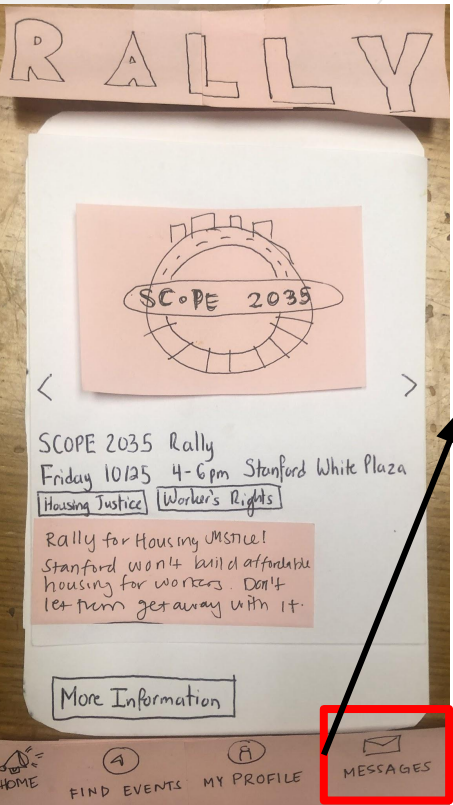 RALLY
SCOPE 2035
SCOPE 2035 Rally
Friday 10/25 4-6pm Stanford White Plaza
Housing Justice Worker's Rights
Rally for Housing Justice!
Stanford won't build affordable
housing for workers. Don't
let them get away with it.
More Information
HOME FIND EVENTS MY PROFILE MESSAGES